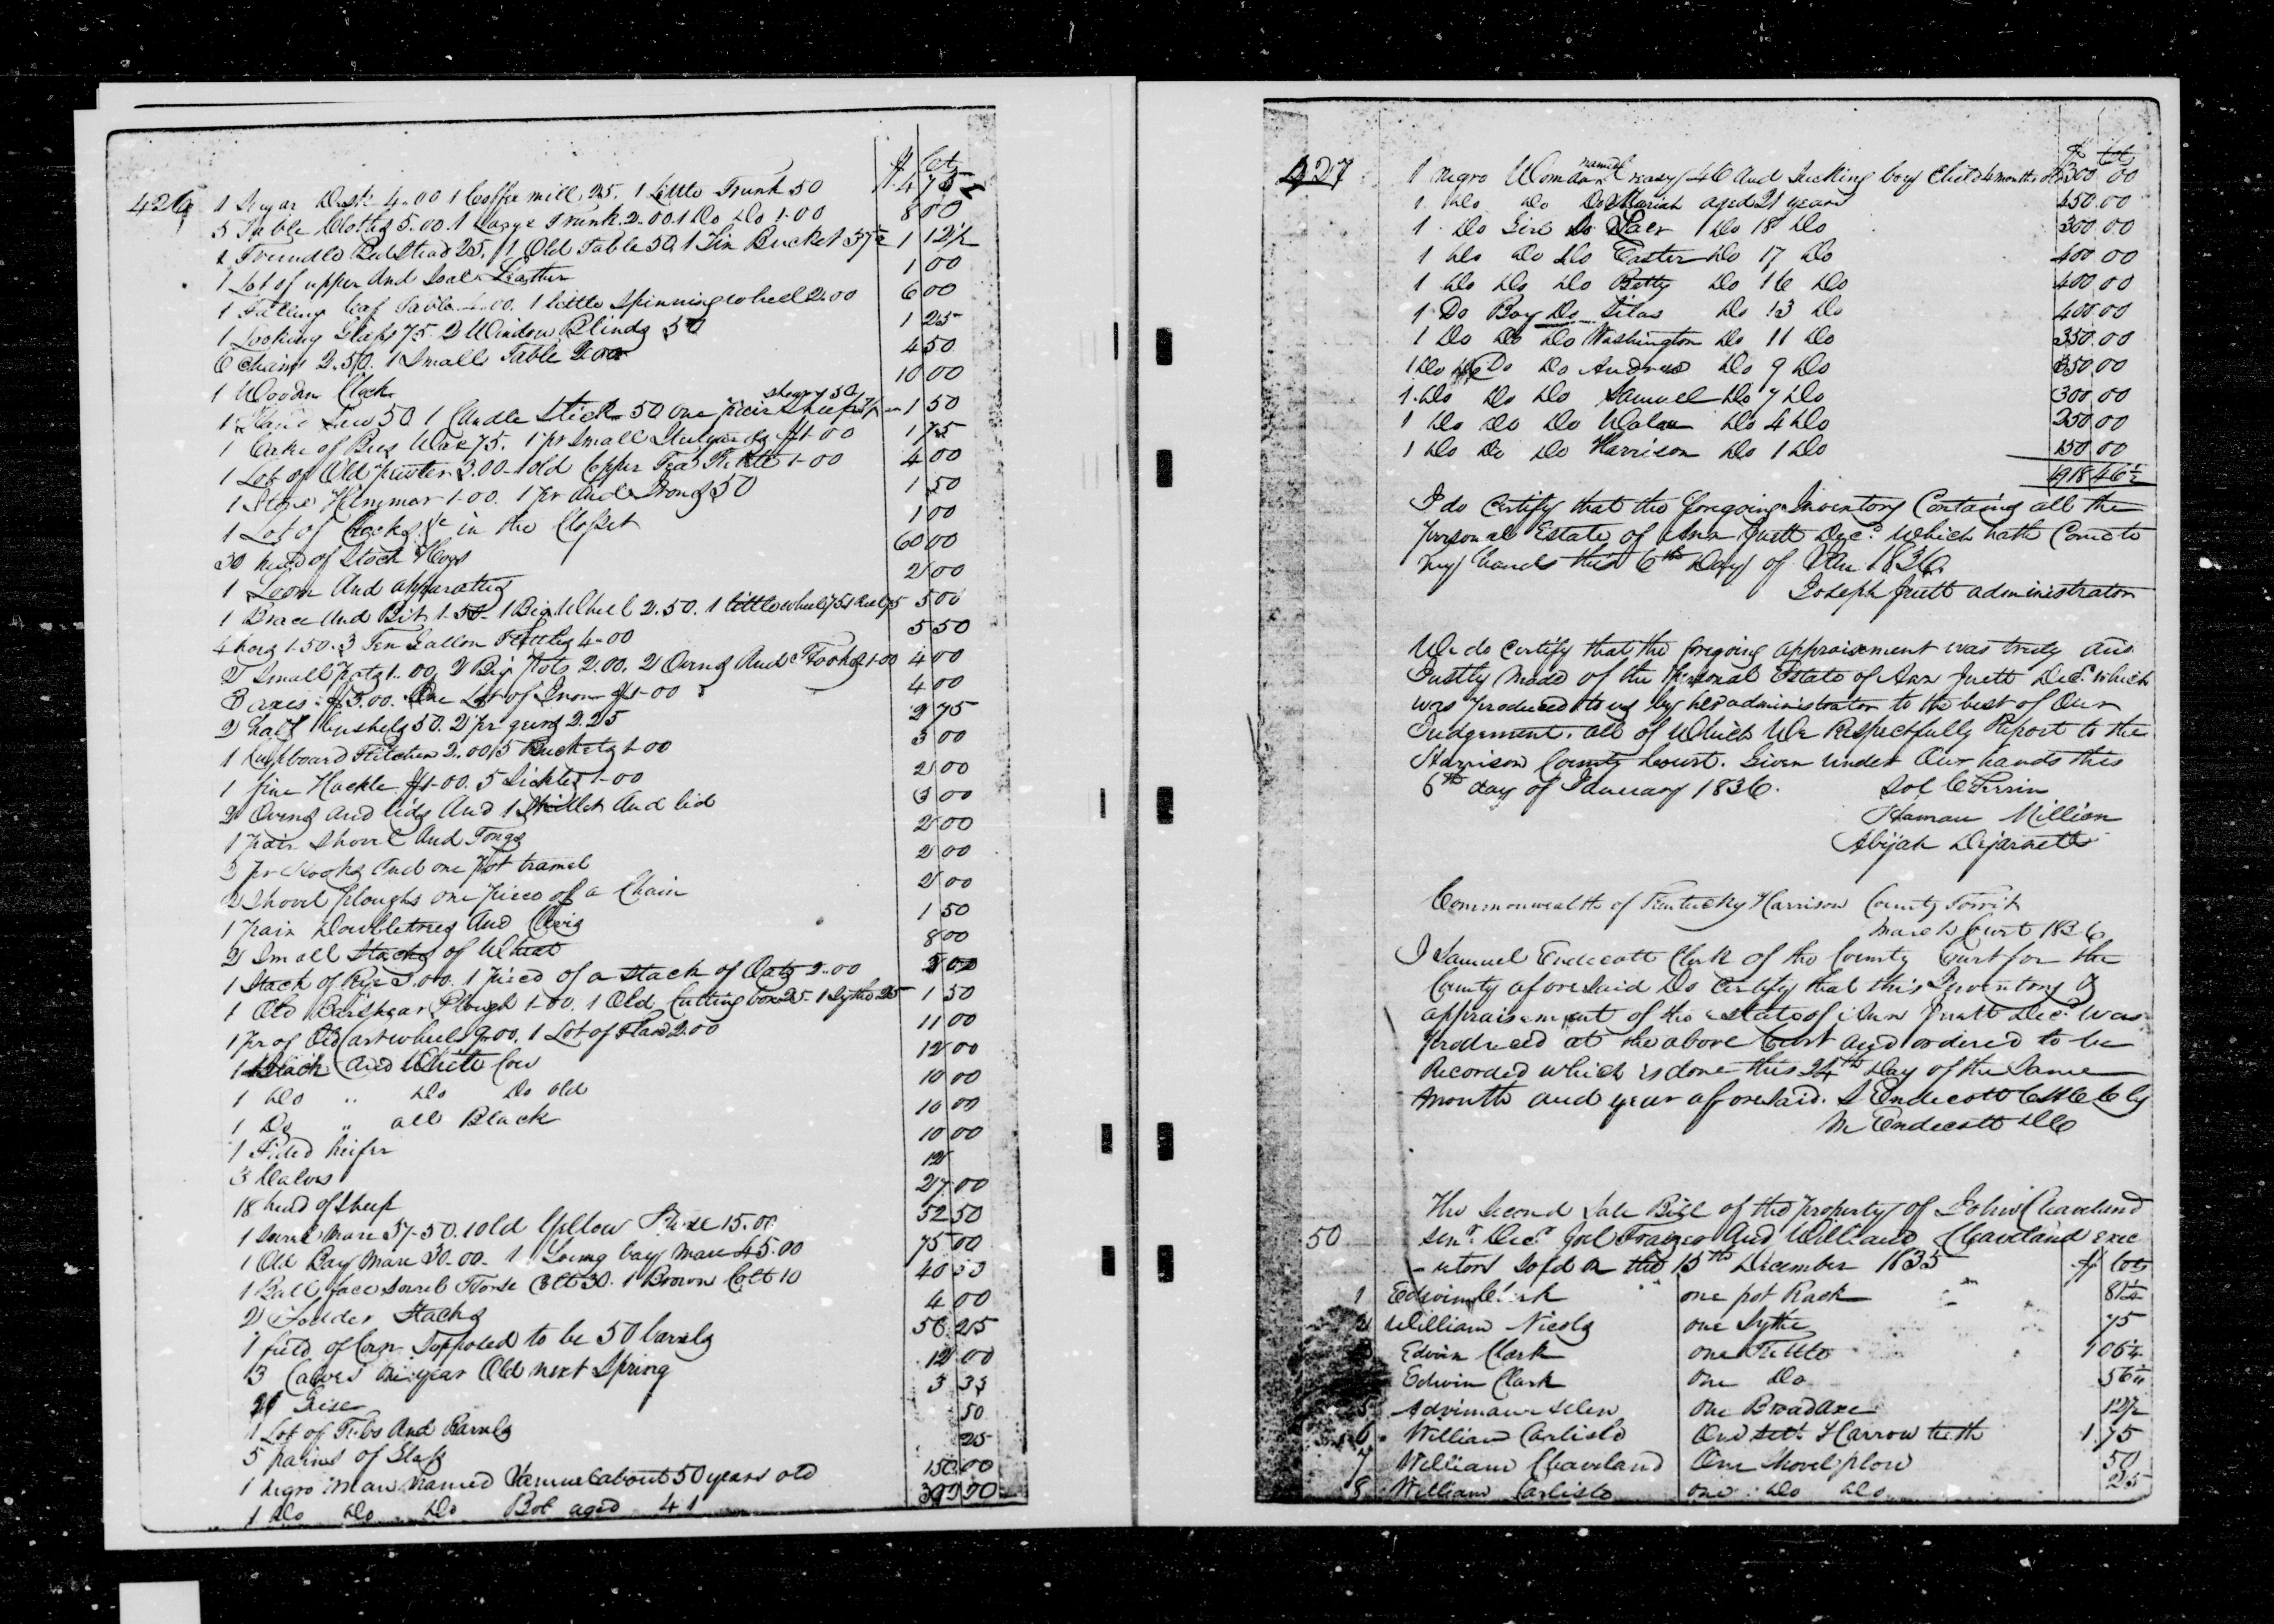 426
$ Cts
1 Sugar Desk 4.00 1 Coffee mill 25. 1 Little Trunk 50 4 75
5 Table Cloths 5.00 1 Large Trunk 2.00 1 Do Do 1.00 8 00
1 Trundle Bedstead 25. 1 Old Table 50. 1 Tin Bucket 37½ 1 12½
1 Lot of upper And Soal Leather 1 00
1 Falling leaf Table 4.00. 1 little Spinning wheel 2.00 6 00
1 Looking Glass 75. 2 Window Blinds 50 1 25
6 Chairs 2.50. 1 Small Table 2.00 4 50
1 Wooden Clock 10 00
1 Hand Saw 50 1 Candle Stick 50 one pair Sheep shears 50 1 50
1 Cake of Bees Wax 75. 1 pr Small Stilyards $1.00 1 75
1 Lot of Old pewter 3.00 1 old Copper Tea Kettle 1.00 4 00
1 Stone Hammer 1.00. 1 pr And Irons 50 1 50
1 Lot of Crocks &c in the Closset 1 00
30 head of Stock Hogs 60 00
1 Loom And apparatus 2 00
1 Brace And Bits 1.50 1 Big Wheel 2.50. 1 little wheel 75 1 Reel 75 5 00
4 hoes 1.50. 3 Ten Gallon Kettles 4.00 5 50
2 Small pots 1.00, 2 Big pots 2.00. 2 Ovens And Hooks 1.00 4 00
3 axes $3.00. One Lot of Iron $1.00 4 00
2 half bushels 50. 2 pr gears 2.25 2 75
1 Cupboard Kitchen 2.00 5 Buckets 1.00 3 00
1 fine Hackle $1.00. 5 Sickles 1.00 2 00
2 Ovens and lids And 1 Skillet And lid 3 00
1 pair Shovel And Tongs 2 00
3 pr Hooks And one pot tramel 2 00
2 Shovel ploughs one piece of a Chain 2 00
1 pair Doubletrees And Clevis 1 50
2 Small Stacks of Wheat 8 00
1 Stack of Rye 3.00. 1 piece of a stack of Oats 2.00 5 00
1 Old Barshear Plough 1.00. 1 Old Cutting box 25. 1 Sythe 25 1 50
1 pr of Old Cartwheels 9.00. 1 Lot of Flax 2.00 11 00
1 Black And White Cow 12 00
1 Do " Do Do old 10 00
1 Do " all Black 10 00
1 Pided heifer 10 00
3 Calves 12
18 head of Sheep 27 00
1 Sorrel Mare 37.50. 1 old Yellow Horse 15.00 52 50
1 Old Bay Mare 30.00. 1 Young bay Mare 45.00 75 00
1 Ball face Sorrel Horse Colt 30. 1 Brown Colt 10 40 00
2 Fodder Stacks 4 00
1 field of Corn Supposed to be 50 barrels 56 25
3 Calves one year Old next Spring 12 00
21 Geese 3 33
1 Lot of Tubs And Barrels 50
5 pains of Glass 25
1 negro man named Samuel about 50 years old 150 00
1 Do Do Do Bob aged 41
427
$ Cts
1 negro Woman named 46 And Sucking boy Child 4 months old 300 00
1. Do Do Do Mariah aged 21 years 450.00
1 Do Girl Do 1 Do 18 Do 300 00
1 Do Do Do Easter Do 17 Do 400 00
1 Do Do Do Betty Do 16 Do 400.00
1 Do Boy Do Silas Do 13 Do 400.00
1 Do Do Do Washington Do 11 Do 350.00
1 Do Do Do Andrew Do 9 Do 350.00
1. Do Do Do Samuel Do 7 Do 300.00
1 Do Do Do Do 4 Do 250.00
1 Do Do Do Harrison Do 1 Do 150 00
4918 46½
I do Certify that the foregoing Inventory Contains all the
personal Estate of Ann Juett Decd. which hath Come to
my hands this 6th Day of Jan 1836.
Joseph Juett administrator
We do Certify that the foregoing appraisement was truly and
Justly made of the personal Estate of Ann Juett Decd. which
was produced to us by her administrator to the best of Our
Judgement. all of Which We Respectfully Report to the
Harrison County Court. Given under Our hands this
6th day of January 1836.
Sol C Perrin
Haman Million
Abijah Dejarnett
Commonwealth of Kentucky Harrison County Towit
March Court 1836
I Samuel Endecott Clerk of the County Court for the
County aforesaid Do Certify that this Inventory &
appraisement of the estate of Ann Juett Decd. was
produced at the above Court and ordered to be
Recorded which is done this 24th Day of the Same
month and year aforesaid. S Endecott C H C C by
M Endecott D C
The Second Sale Bill of the property of John Cleaveland
50 senr. Decd. Joel Frazer And William Cleaveland exec
-utors Sold on the 15th December 1835 $ Cts
1 Edwin Clark one pot Rack 81¼
2 William Nicols one Sythe 75
Edwin Clark one Kettle 1 06¼
Edwin Clark One Do 56¼
5 One Broad axe 12½
6 William Carlisle One sett Harrow teeth 1.75
7 William Cleaveland One Shovel plow 50
8 William Carlisle one Do Do 25